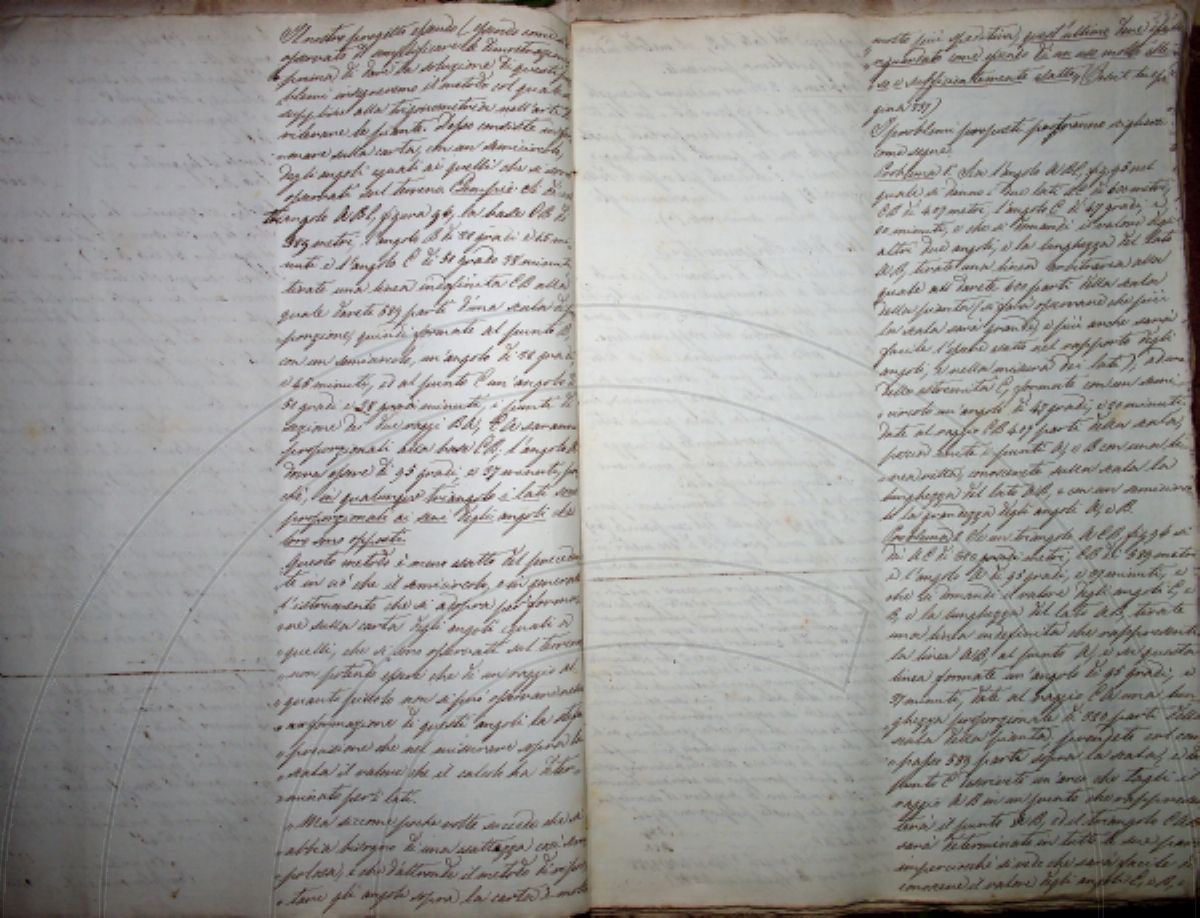 Il nostro progetto essendo (essendo come si è
osservato di semplificare le dimostrazioni
prima di dare la soluzione di questi pro-
blemi insegneremo il metodo col quale
supplire alla trigonometria nell'arte di
rilevare le piante. Esso consiste in for-
mare sulla carta, con un semicircolo,
degli angoli eguali ai quelli che si sono
osservati sul terreno. Esempio: di un
triangolo ABC, figura 96, la base CB di
589 metri, l'angolo B di 38 gradi e 45 mi-
nuti e l'angolo C di 50 gradi 38 minuti,
tirate una linea indefinita CB alla
quale darete 589 parti d'una scala di
porzione, quindi formate al punto B,
con un semicircolo, un'angolo di 38 gradi
e 45 minuti, ed al punto C un'angolo di
50 gradi e 38 minuti, i punti di
sezione de' due raggi BA, CA saranno
proporzionali alla base CB, l'angolo A
dovrà essere di 95 gradi e 37 minuti, poi-
chè, in qualunque triangolo i lati sono
proporzionali ai seni degli angoli che
loro sono opposti.
Questo metodo è meno esatto del preceden-
te in ciò che il semicircolo, e in generale
l'istrumento che si adopra per forma-
re sulla carta degli angoli eguali a
quelli, che si sono osservati sul terreno
non potendo essere che di un raggio al-
quanto piccolo non si può osservare nella
formazione di questi angoli la stessa
precisione che nel misurare sopra la
scala il valore che il calcolo ha deter-
minato per i lati.
Ma siccome poche volte succede che si
abbia bisogno di una esattezza così scru-
polosa, e che d'altronde il metodo di ripor-
tare gli angoli sopra la carta è molto
molto più speditivo, quest'ultimo deve essere
riguardato come essendo di un uso molto este-
so e sufficientemente esatto
gina 537)
I problemi proposti potranno sciogliersi
come segue.
Problema 1. Sia l'angolo ABC, fig. 95 nel
quale si danno i due lati AC di 600 metri,
CB di 407 metri, l'angolo C di 47 gradi, e
20 minuti, e che si domandi il valore degli
altri due angoli, e la lunghezza del lato
AB, tirate una linea arbitraria alla
quale darete 600 parti della scala
della pianta (si farà osservare che più
la scala sarà grande, e più anche sarà
facile l'essere esatto nel rapporto degli
angoli, e nella misura dei lati), ad una
delle estremità C, formate con un semi-
circolo un'angolo di 47 gradi, e 20 minuti
date al raggio CB 407 parti della scala,
poscia unite i punti A, e B con una li-
nea retta, conoscerete sulla scala la
lunghezza del lato AB, e con un semicirco-
lo la grandezza degli angoli A, e B.
Problema 2. Di un triangolo ACB, fig. 96 si
dà AC di 380 metri, CB di 589 metri
e l'angolo A di 95 gradi, e 37 minuti, e
che si domandi il valore degli angoli C, e
B, e la lunghezza del lato AB, tirate
una linea indefinita che rappresenti
la linea AB, al punto A, e su questa
linea formate un'angolo di 95 gradi, e
37 minuti, date al raggio CA una lun-
ghezza proporzionale di 380 parti della
scala della pianta, prendete col com-
passo 589 parti sopra la scala, e dal
punto C descrivete un'arco che tagli il
raggio AB in un punto che rappresen-
terà il punto B, ed il triangolo CAB
sarà determinato in tutte le sue parti
imperciocchè si vede che sarà facile di
conoscere il valore degli angoli C, e B,